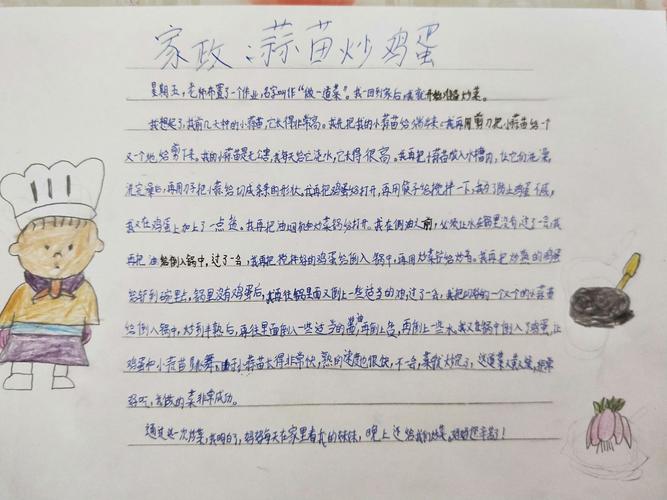 家政：蒜苗炒鸡蛋
星期五，老师布置了一个作业，名字叫作“做一道菜”。我一回到家后，就开始准备炒菜。
我想起了，我前几天种的小蒜苗，它长得非常高。我先把我的小蒜苗给端出来，我再用剪刀把小蒜苗给一
又一个地给剪下来。我的小蒜苗是无公害，我每天给它浇水，它长得很高。我再把小蒜苗放入水槽内，让它们洗澡
洗完澡后，再用刀子把小蒜苗给切成条的形状，我再把鸡蛋给打开，再用筷子给搅拌一下，我为了防止鸡蛋
我又在鸡蛋上加上了一点盐。我再把油烟机和炒菜锅给打开。我在倒油之前，必须让水在锅里没有，过了一会，我
再把油给倒入锅中，过了一会，我再把搅拌好的鸡蛋给倒入锅中，再用炒菜铲给炒着。我再把炒熟的鸡蛋
给铲到碗里，锅里没有鸡蛋后，我再往锅里面又倒上一些适当的油，过了一会，我把切好的一个又一个的小蒜苗
给倒入锅中，炒到半熟后，再往里面倒入一些适当的酱油，再倒上盐，再倒上一些水，我又在锅中倒入了鸡蛋，让
鸡蛋和小蒜苗跳舞，由于小蒜苗长得非常快，熟的速度也很快，不一会，菜就炒完了，这道菜又黄又绿，
好吃，我做的菜非常成功。
通过这一次炒菜，我明白了，妈妈每天在家里看我的妹妹，晚上还给我们炒菜，妈妈很辛苦了！